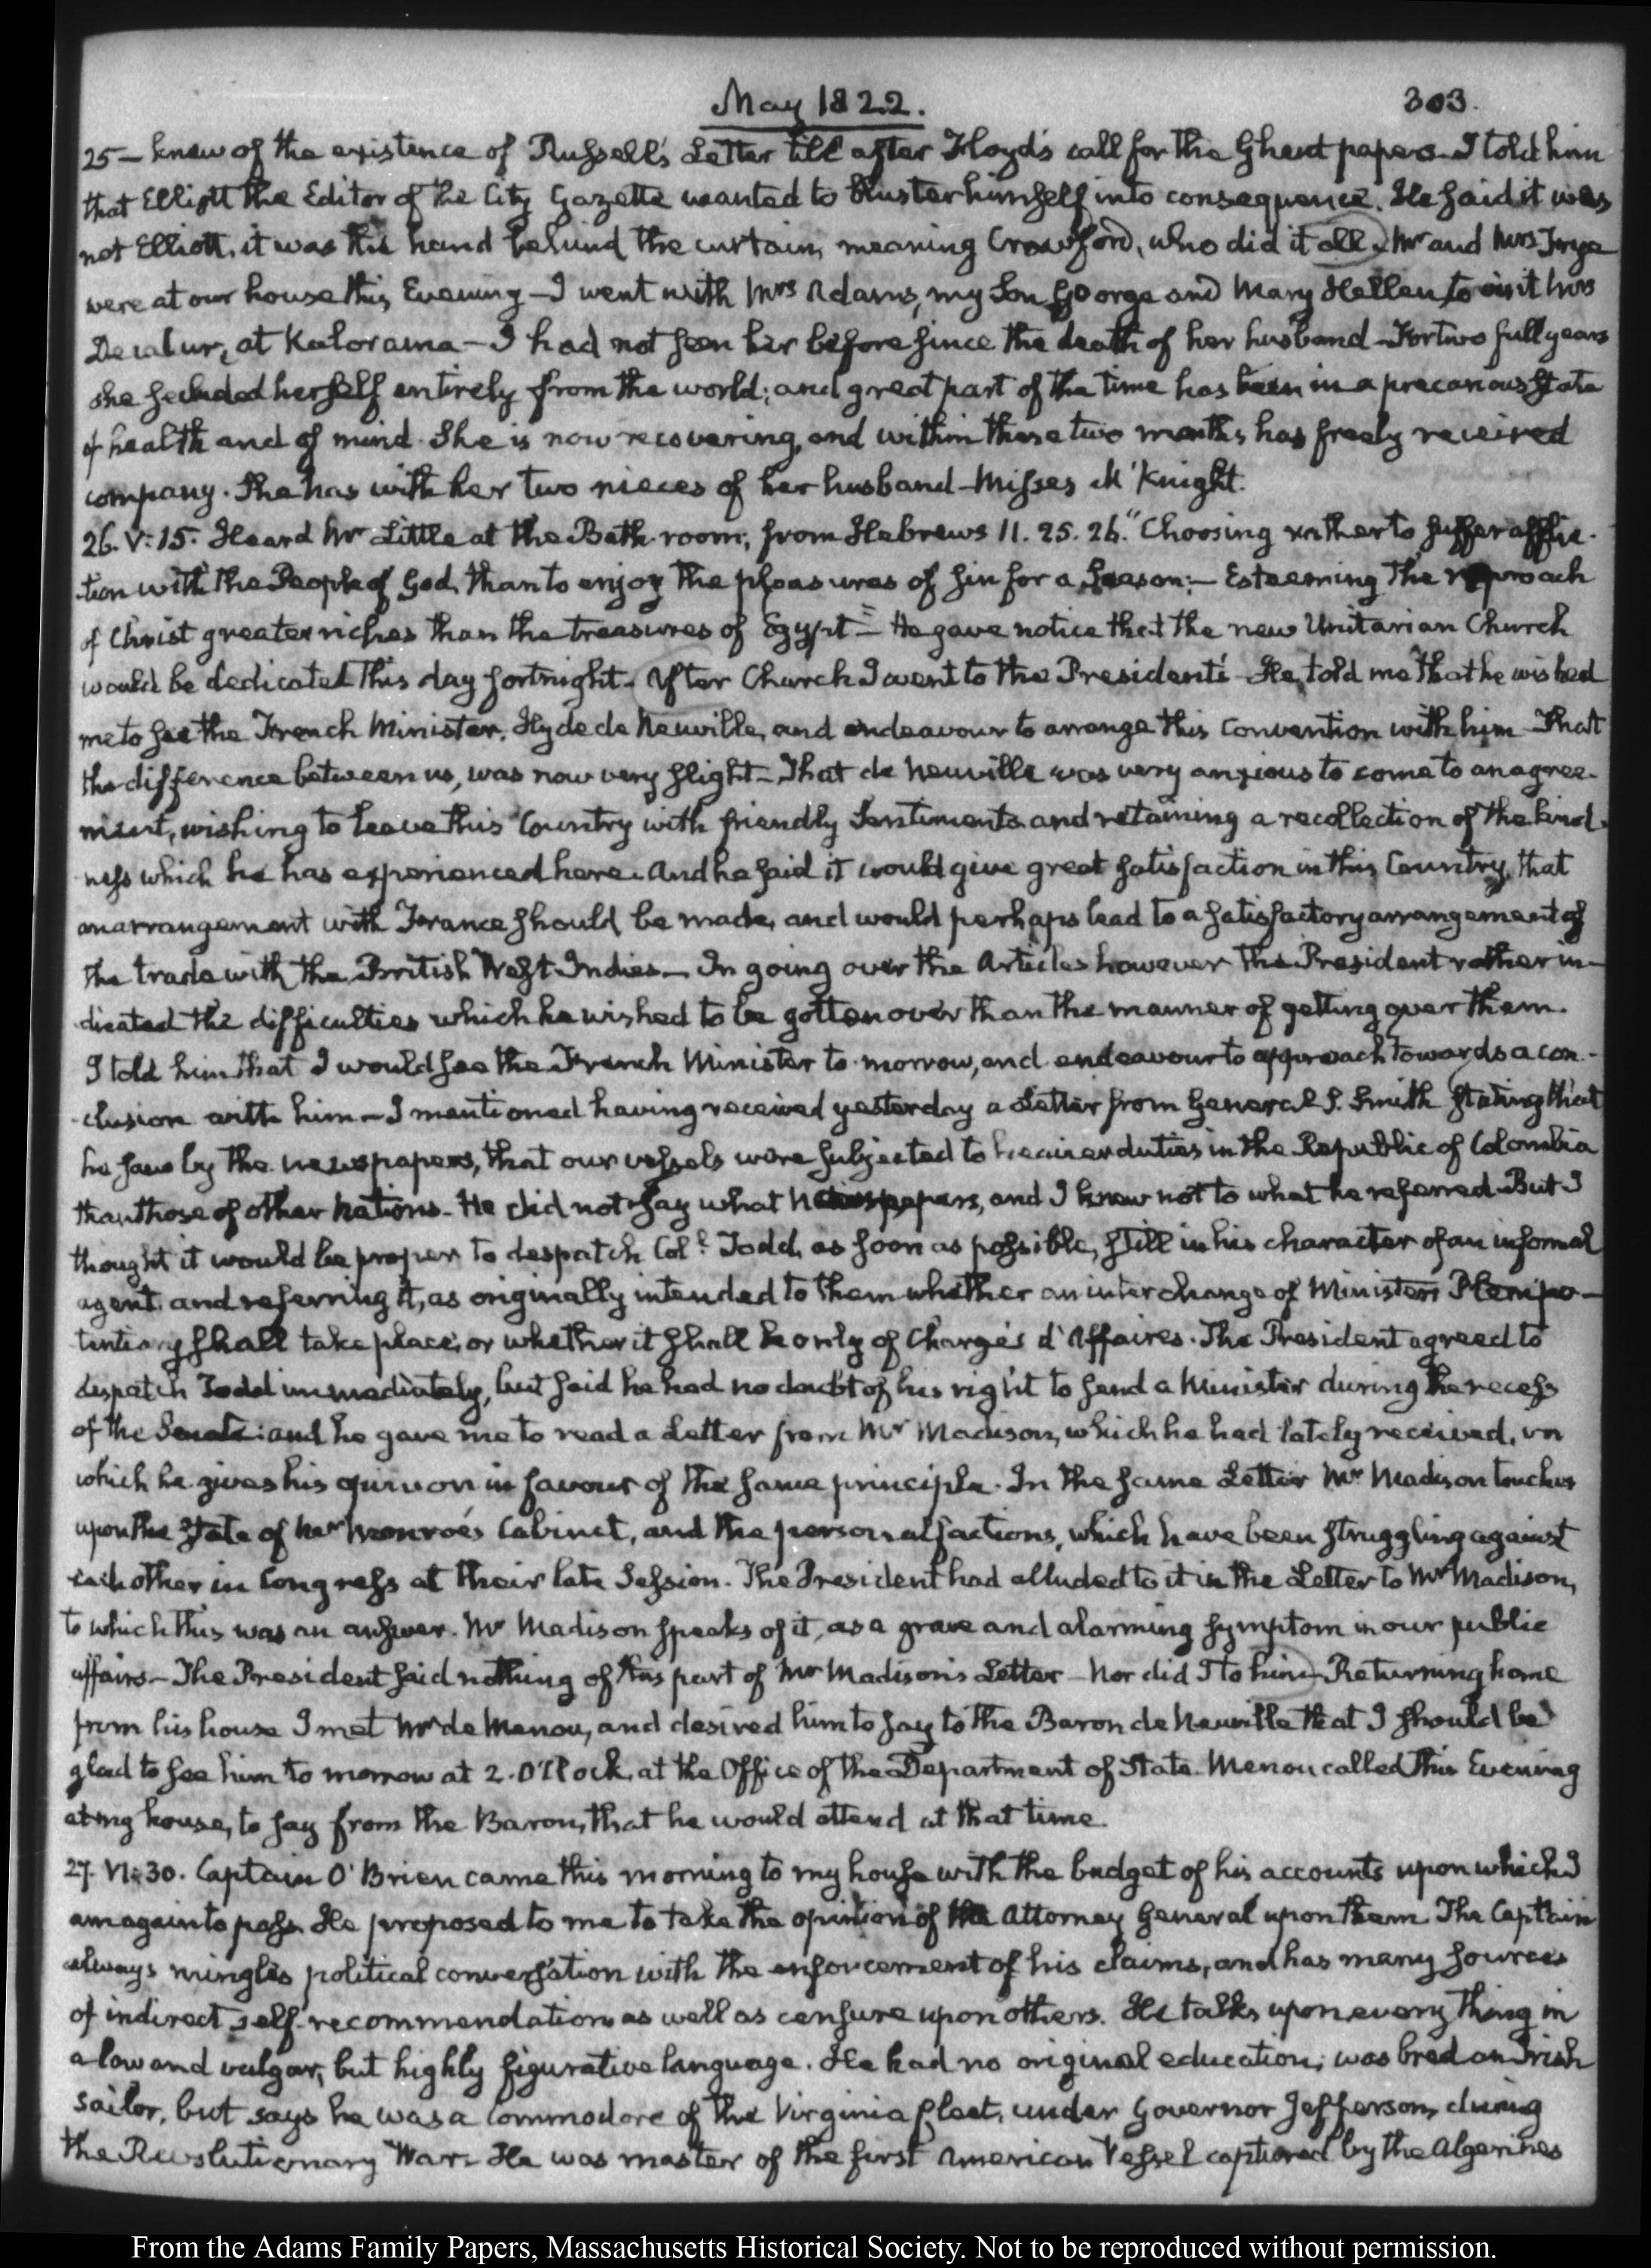 May 1822.
303.
25 — knew of the existence of Russell's Letter till after Floyd's call for the Ghent papers. I told him
that Elliott the Editor of the City Gazette wanted to bluster himself into consequence. He said it was
not Elliott, it was the hand behind the curtain, meaning Crawford, who did it all. Mr and Mrs Frye
were at our house this Evening — I went with Mrs Adams, my Son George and Mary Hellen to visit Mrs
Decatur, at Kalorama — I had not seen her before since the death of her husband — For two full years
she secluded herself entirely from the world; and great part of the time has been in a precarious State
of health and of mind. She is now recovering, and within these two months has freely received
company. She has with her two nieces of her husband — Misses M'Knight.
26. V:15. Heard Mr Little at the Bath-room, from Hebrews 11. 25. 26. "Choosing rather to suffer afflic-
tion with the People of God, than to enjoy the pleasures of sin for a Season; — Esteeming the reproach
of Christ greater riches than the treasures of Egypt" — He gave notice that the new Unitarian Church
would be dedicated this day fortnight. After Church I went to the President's — He told me that he wished
me to see the French Minister, Hyde de Neuville, and endeavour to arrange this Convention with him — That
the difference between us, was now very slight — That de Neuville was very anxious to come to an agree-
ment, wishing to leave this Country with friendly Sentiments and retaining a recollection of the kind-
ness which he has experienced here. And he said it would give great satisfaction in this Country, that
an arrangement with France should be made, and would perhaps lead to a satisfactory arrangement of
the trade with the British West-Indies — In going over the Articles however the President rather in-
dicated the difficulties which he wished to be gotten over than the manner of getting over them.
I told him that I would see the French Minister to-morrow, and endeavour to approach towards a con-
clusion with him — I mentioned having received yesterday a Letter from General S. Smith stating that
he saw by the newspapers, that our vessels were subjected to heavier duties in the Republic of Colombia
than those of other Nations — He did not say what newspapers, and I knew not to what he referred. But I
thought it would be proper to despatch Coll. Todd, as soon as possible, still in his character of an informal
agent, and referring it, as originally intended to them whether an interchange of Ministers Plenipo-
tentiary shall take place, or whether it shall be only of Chargés d'Affaires. The President agreed to
despatch Todd immediately, but said he had no doubt of his right to send a Minister during the recess
of the Senate: and he gave me to read a Letter from Mr Madison, which he had lately received, in
which he gives his opinion in favour of the same principle. In the same Letter Mr Madison touches
upon the State of Mr Monroe's Cabinet, and the personal factions, which have been struggling against
each other in Congress at their late Session. The President had alluded to it in the Letter to Mr Madison,
to which this was an answer. Mr Madison speaks of it, as a grave and alarming symptom in our public
affairs — The President said nothing of this part of Mr Madison's Letter — Nor did I to him — Returning home
from his house I met Mr de Menou, and desired him to say to the Baron de Neuville that I should be
glad to see him to morrow at 2. O'Clock, at the Office of the Department of State. Menou called this Evening
at my house, to say from the Baron, that he would attend at that time.
27. VI:30. Captain O'Brien came this morning to my house with the budget of his accounts upon which I
am again to pass. He proposed to me to take the opinion of the Attorney General upon them. The Captain
always mingles political conversation with the enforcement of his claims, and has many sources
of indirect self-recommendation as well as censure upon others. He talks upon every thing in
a low and vulgar, but highly figurative language. He had no original education; was bred an Irish
sailor, but says he was a Commodore of the Virginia fleet, under Governor Jefferson, during
the Revolutionary War. He was master of the first American Vessel captured by the Algerines
From the Adams Family Papers, Massachusetts Historical Society. Not to be reproduced without permission.